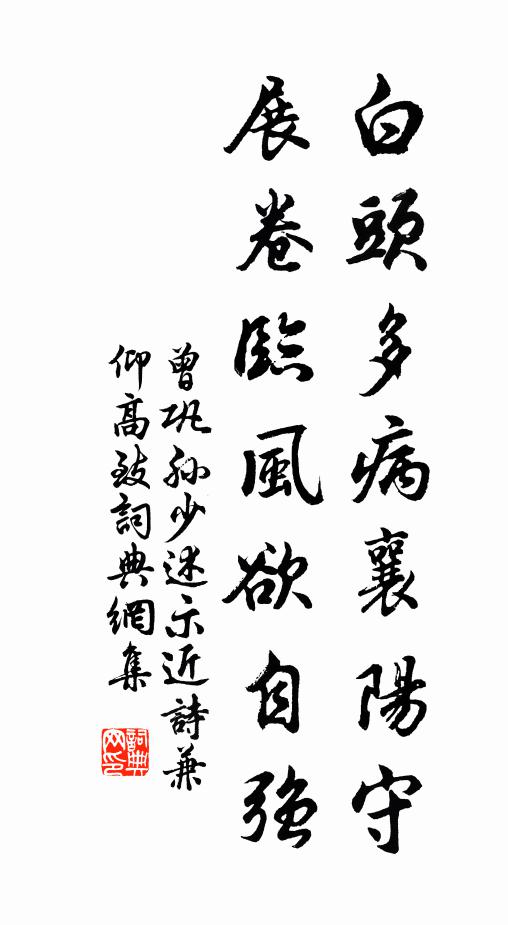 白頭多病襄陽守
展卷臨風欲自強
曾巩孫少述示近詩兼
仰高致詞典網集
詞典网印